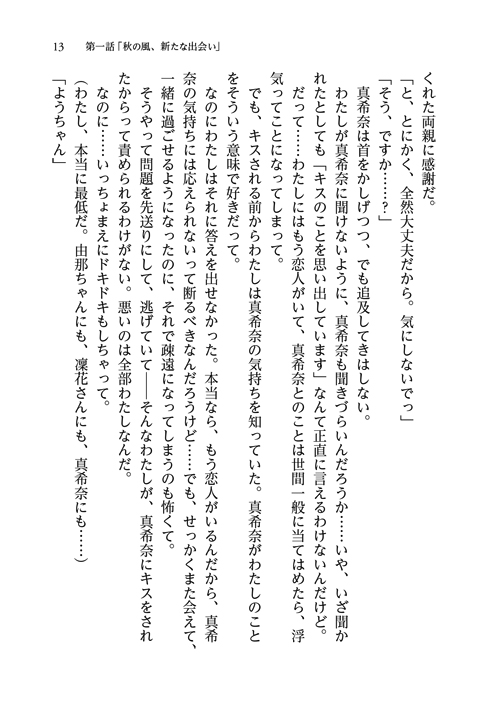 13　第一話「秋の風、新たな出会い」
くれた両親に感謝だ。
「と、とにかく、全然大丈夫だから。気にしないでっ」
「そう、ですか……？」
真希奈は首をかしげつつ、でも追及してきはしない。
わたしが真希奈に聞けないように、真希奈も聞きづらいんだろうか……いや、いざ聞か
れたとしても「キスのことを思い出しています」なんて正直に言えるわけないんだけど。
だって……わたしにはもう恋人がいて、真希奈とのことは世間一般に当てはめたら、浮
気ってことになってしまって。
でも、キスされる前からわたしは真希奈の気持ちを知っていた。真希奈がわたしのこと
をそういう意味で好きだって。
なのにわたしはそれに答えを出せなかった。本当なら、もう恋人がいるんだから、真希
奈の気持ちには応えられないって断るべきなんだろうけど……でも、せっかくまた会えて、
一緒に過ごせるようになったのに、それで疎遠になってしまうのも怖くて。
そうやって問題を先送りにして、逃げていて――そんなわたしが、真希奈にキスをされ
たからって責められるわけがない。悪いのは全部わたしなんだ。
なのに……いっちょまえにドキドキもしちゃって。
（わたし、本当に最低だ。由那ちゃんにも、凜花さんにも、真希奈にも……）
「ようちゃん」